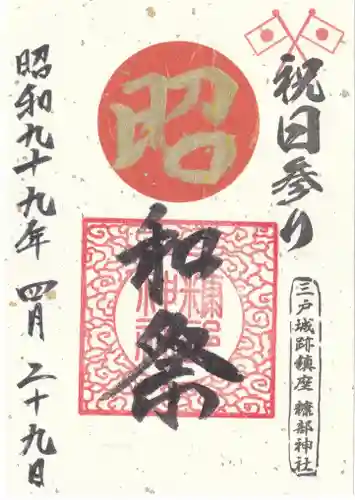 祝日参り
三戸城跡鎮座 糠部神社
昭
和祭
昭和九十九年 四月 二十九日